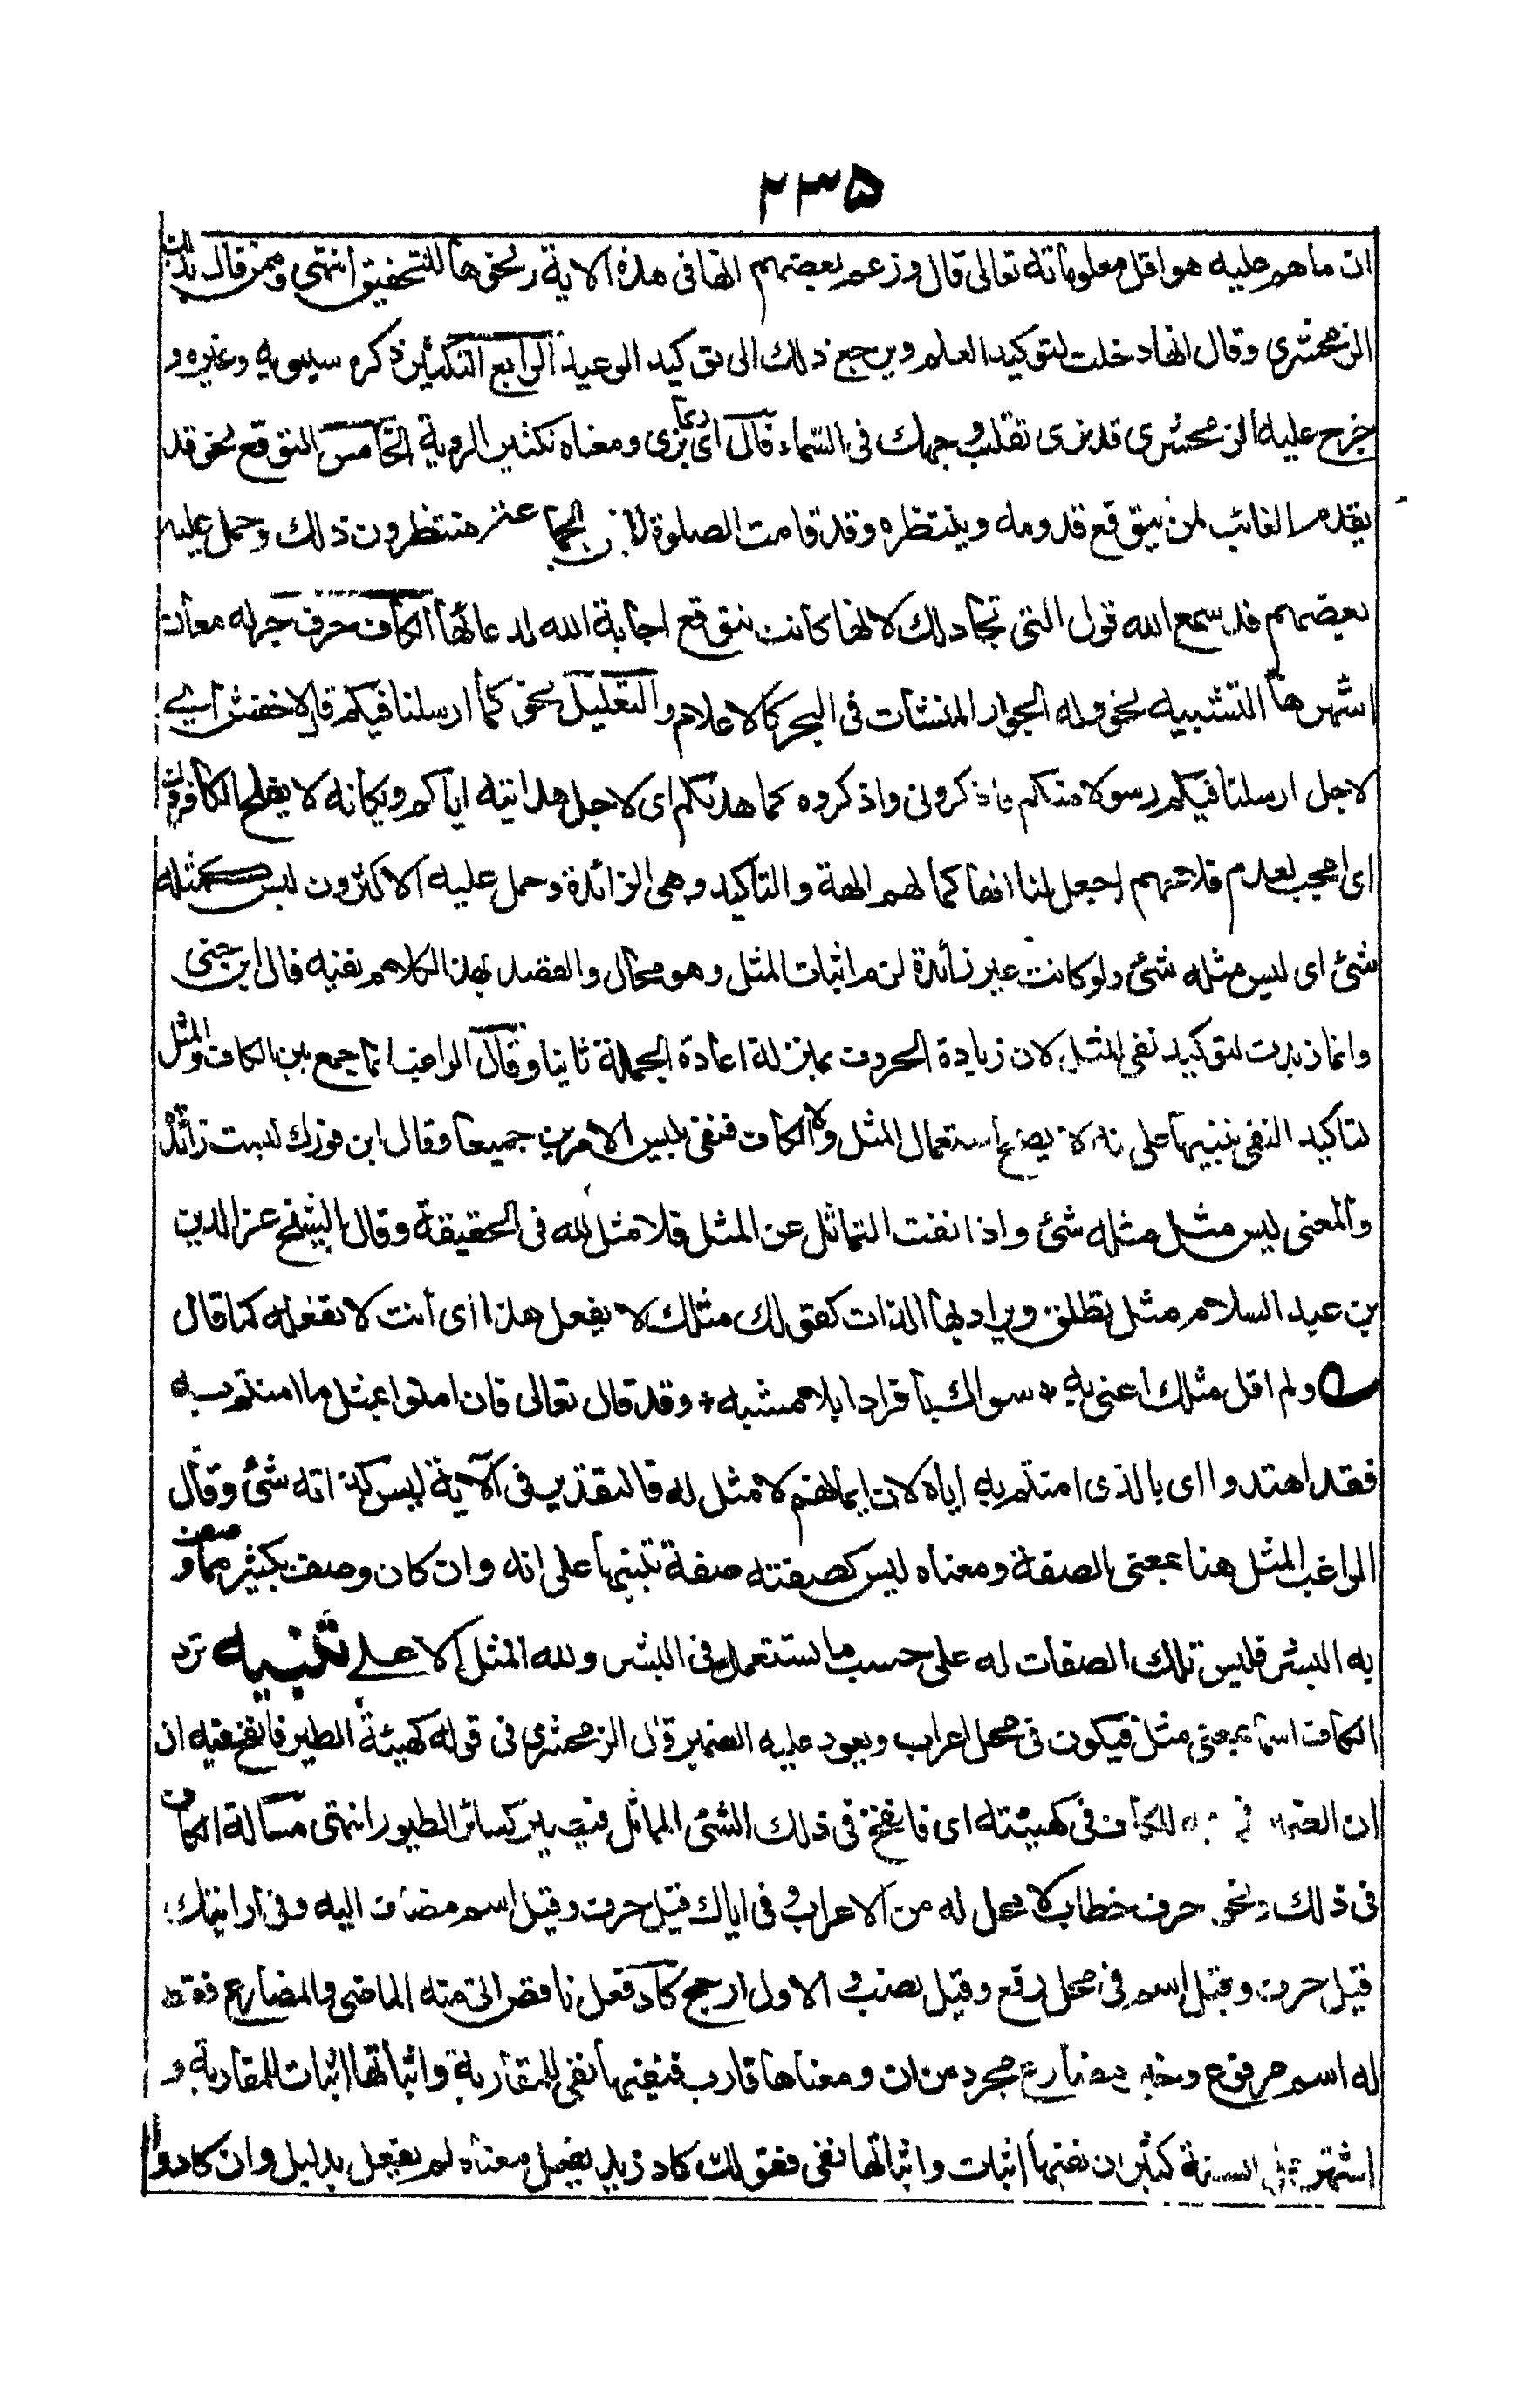 ٢٣٥
ان ما هم عليه هو اقل معلوماته تعالى قال وزعم بعضهم انها فى هذه الاية ونحوها للتحقيق انتهى وممن قال بذلك
الزمخشرى وقال انها دخلت لتوكيد العلم ويرجع ذلك الى توكيد الوعيد الرابع التكثير ذكره سيبويه وغيره و
خرج عليه الزمخشرى قد نرى تقلب وجهك فى السماء قال اى ربما نرى ومعناه تكثير الروية الخامس التوقع نحو قد
يقدم الغائب لمن يتوقع قدومه وينتظره وقد قامت الصلوة لان الجماعة منتظرون ذلك وحمل عليه
بعضهم قد سمع الله قول التى تجادلك لانها كانت تتوقع اجابة الله لدعائها الكاف حرف جر له معان
اشهرها التشبيه نحو وله الجوار المنشآت فى البحر كالاعلام والتعليل نحو كما ارسلنا فيكم قال الاخفش اى
لاجل ارسلنا فيكم رسولا منكم فاذكرونى واذكروه كما هدٰكم اى لاجل هدايته اياكم ويكانه لا يفلح الكافرون
اى اعجب لعدم فلاحهم اجعل لنا الها كما لهم الهة والتاكيد وهى الزائدة وحمل عليه الاكثرون ليس كمثله
شئ اى ليس مثله شئ ولو كانت غير زائدة لزم اثبات المثل وهو محال والقصد بهذا الكلام نفيه قال ابن جنى
وانما زيدت لتوكيد نفى المثل لان زيادة الحروف بمنزلة اعادة الجملة ثانيا وقال الراغب انما جمع بين الكاف والمثل
لتاكيد النفى تنبيها على انه لا يصح استعمال المثل ولا الكاف فنفى بليس الامرين جميعا وقال ابن فورك ليست زائدة
والمعنى ليس مثل مثله شئ واذا نفت التماثل عن المثل فلا مثل لله فى الحقيقة وقال الشيخ عز الدين
بن عبد السلام مثل يطلق ويراد بها الذات كقولك مثلك لا يفعل هذا اى انت لا تفعله كما قال
ولم اقل مثلك اعنى به + سواك يا فردا بلا مشبه + وقد قال تعالى فان امنوا بمثل ما امنتم به
فقد اهتدوا اى بالذى امنتم به اياه لان ايمانهم لا مثل له فالتقدير فى الاية ليس كذاته شئ وقال
الراغب المثل هنا بمعنى الصفة ومعناه ليس كصفته صفة تنبيها على انه وان كان وصف بكثير مما وصف
به البشر فليس تلك الصفات له على حسب ما تستعمل فى البشر ولله المثل الاعلى تنبيه ترد
الكاف اسما بمعنى مثل فيكون فى محل اعراب ويعود عليه الضمير قال الزمخشرى فى قوله كهيئة الطير فانفخ فيه ان
ان الضمير فى فيه للكاف فى كهيئته اى فانفخ فى ذلك الشئ المماثل فيصير كسائر الطيور انتهى مسألة الكاف
فى ذلك ونحوه حرف خطاب لا محل له من الاعراب وفى اياك قيل حرف وقيل اسم مضاف اليه وفى ارايتك
قيل حرف وقيل اسم فى محل رفع وقيل نصب والاول ارجح كاد فعل ناقص اتى منه الماضى والمضارع فقط
له اسم مرفوع وخبر مضارع مجرد من ان ومعناها قارب فنفيها نفى للمقاربة واثباتها اثبات للمقاربة و
اشتهر على السنة كثير ان نفيها اثبات واثباتها نفى فقولك كاد زيد يفعل معناه لم يفعل بدليل وان كادوا